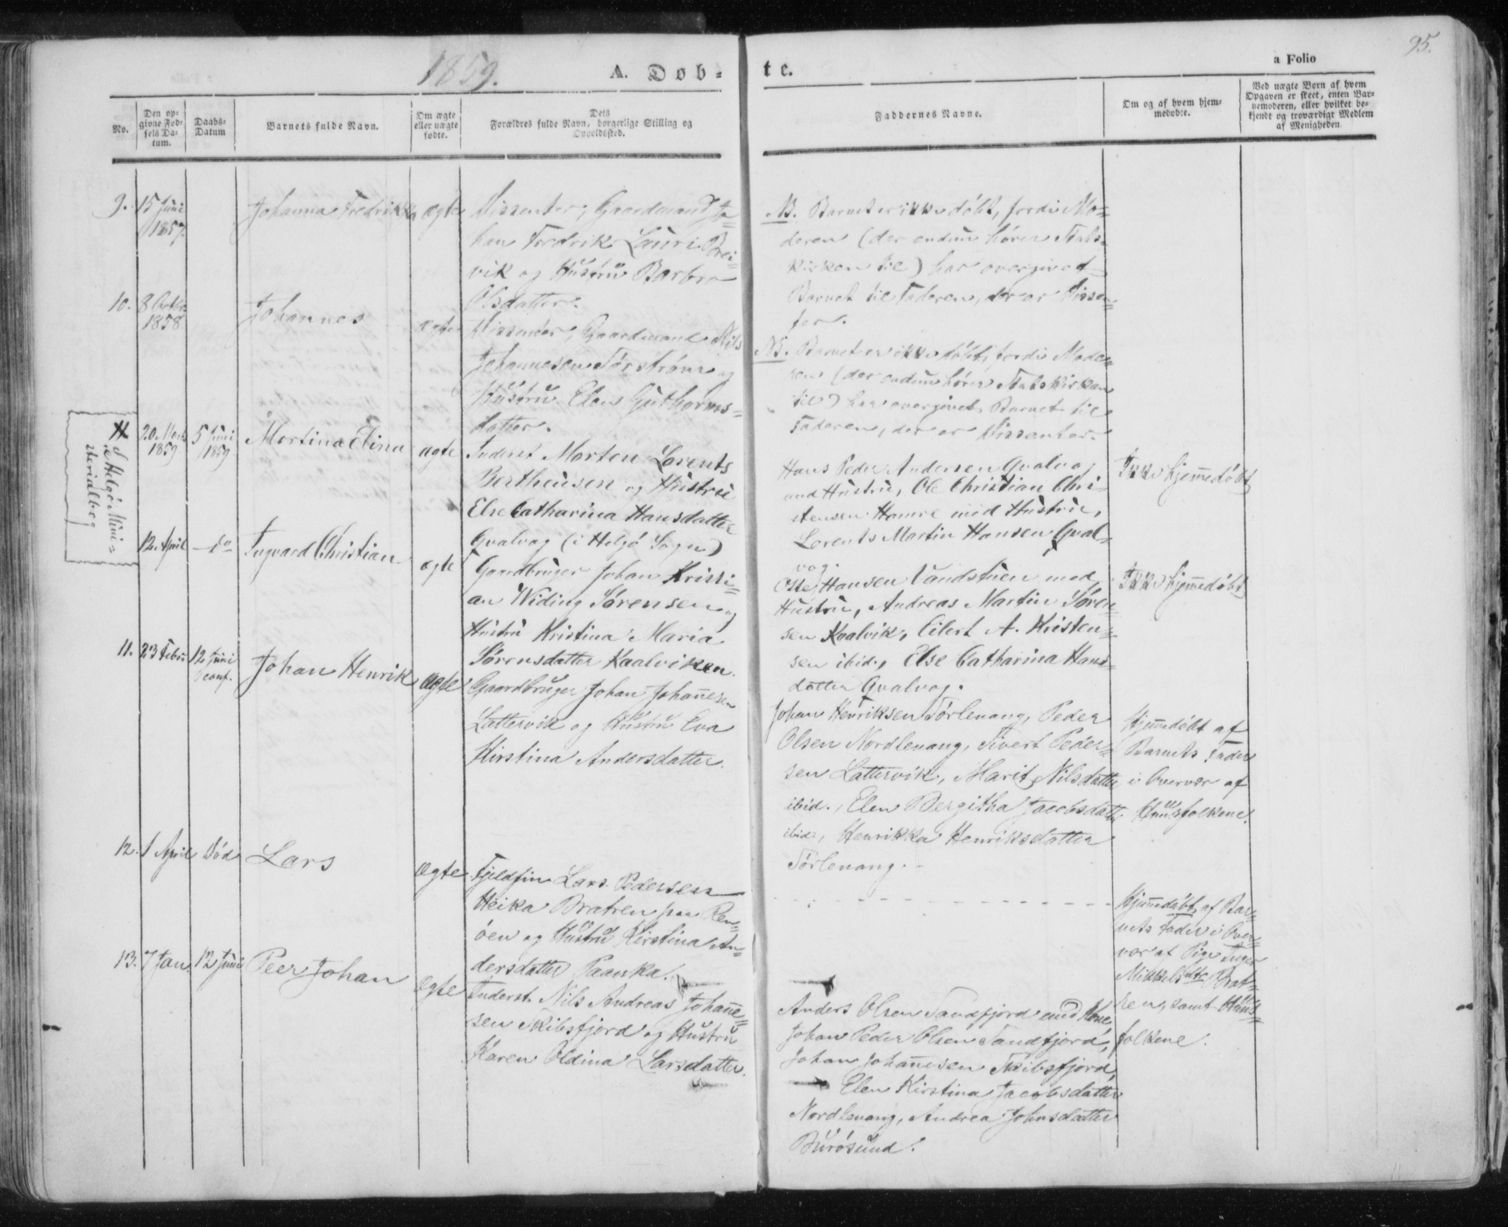 95.
1859.
A. Døb-
te.
a Folio
No.
Den op-
givne Fød-
sels Da-
tum.
Daabs-
Datum
Barnets fulde Navn.
Om ægte
eller uægte
fødte.
Dets
Forældres fulde Navn, borgerlige Stilling og
Opholdssted.
Faddernes Navne.
Om og af hvem hjem-
medøbte.
Ved uægte Børn af hvem
Opgaven er skeet, enten Bar-
nemoderen, eller hvilket be-
kjendt og troværdigt Medlem
af Menigheden.
9.
15 Juni
1857.
Johanna Fredrikka
ægte
Dissenter, Gaardmand Jo-
han Fredrik Lauri Brei-
vik og Hustru Barbro
Olsdatter.
NB. Barnet er ikke døbt, fordi Mo-
deren (der endnu hører Stats-
kirken til) har overgivet
Barnet til Faderen, der er Dissen-
ter.
10.
8
1858
Johannes
ægte
Dissenter, Gaardmand Nils
Johannesen og
Hustru Elen Guthorms-
datter.
NB. Barnet er ikke døbt, fordi Mode-
ren (der endnu hører Statskirken
til) har overgivet Barnet til
Faderen, der er Dissenter.
#
Helgø Mini-
sterialbog
20. Marts
1859
5 Juni
1859
Martina Elina
ægte
Inderst Morten Lorents
Bertheusen og Hustru
Else Catharina Hansdatter
Qvalvog (i Helgø Sogn)
Hans Peder Andersen Qvalvog
med Hustru, Ole Christian Chri-
stensen Hamre med Hustru,
Lorents Martin Hansen Qval-
vog.
Ikke hjemmedøbt
12. April
do
Ingvard Christian
ægte
Gaardbruger Johan Kristi-
an Widing Sørensen og
Hustru Kristina Maria
Sørensdatter Kaalviken.
Hansen Vandstuen med
Hustru, Andreas Martin Søren-
sen Kaalvik, Eilert A. Kristen-
sen ibid., Else Catharina Hans-
datter Qvalvog.
Ikke hjemmedøbt
11.
23 Febru
12 Juni
conf.
Johan Henrik
ægte
Gaardbruger Johan Johannesen
Lattervik og Hustru Eva
Kirstina Andersdatter.
Johan Henriksen Sørlenang, Peder
Olsen Nordlenang, Sivert Peder-
sen Lattervik, Marit Nilsdatter
ibid., Elen Bergitha Jacobsdatt.
ibid., Henrikka Henriksdatter
Sørlenang.
Hjemmedøbt af
Barnets Fader
i Overvær af
Huusfolkene.
12.
1 April
Død
Lars
ægte
Fjeldfin Lars Pedersen
Heika Bratren paa Ren-
øen og Hustru Kirstina An-
dersdatter Paanka.
Hjemmedøbt af Bar-
nets Fader i Over-
vær af Pige Inger
Mikkelsdtr Brat-
ren, samt Huus-
folkene.
13.
7 Jan
12 Juni
Peer Johan
ægte
Inderst Nils Andreas Johanne-
sen Skibsfjord og Hustru
Karen Oldina Larsdatter.
Anders Olsen Sandfjord med Kone,
Johan Peder Olsen Sandfjord,
Johan Johannesen Skibsfjord,
Elen Kirstina Jacobsdatter
Nordlenang, Andrea Johnsdatter
Burøsund.